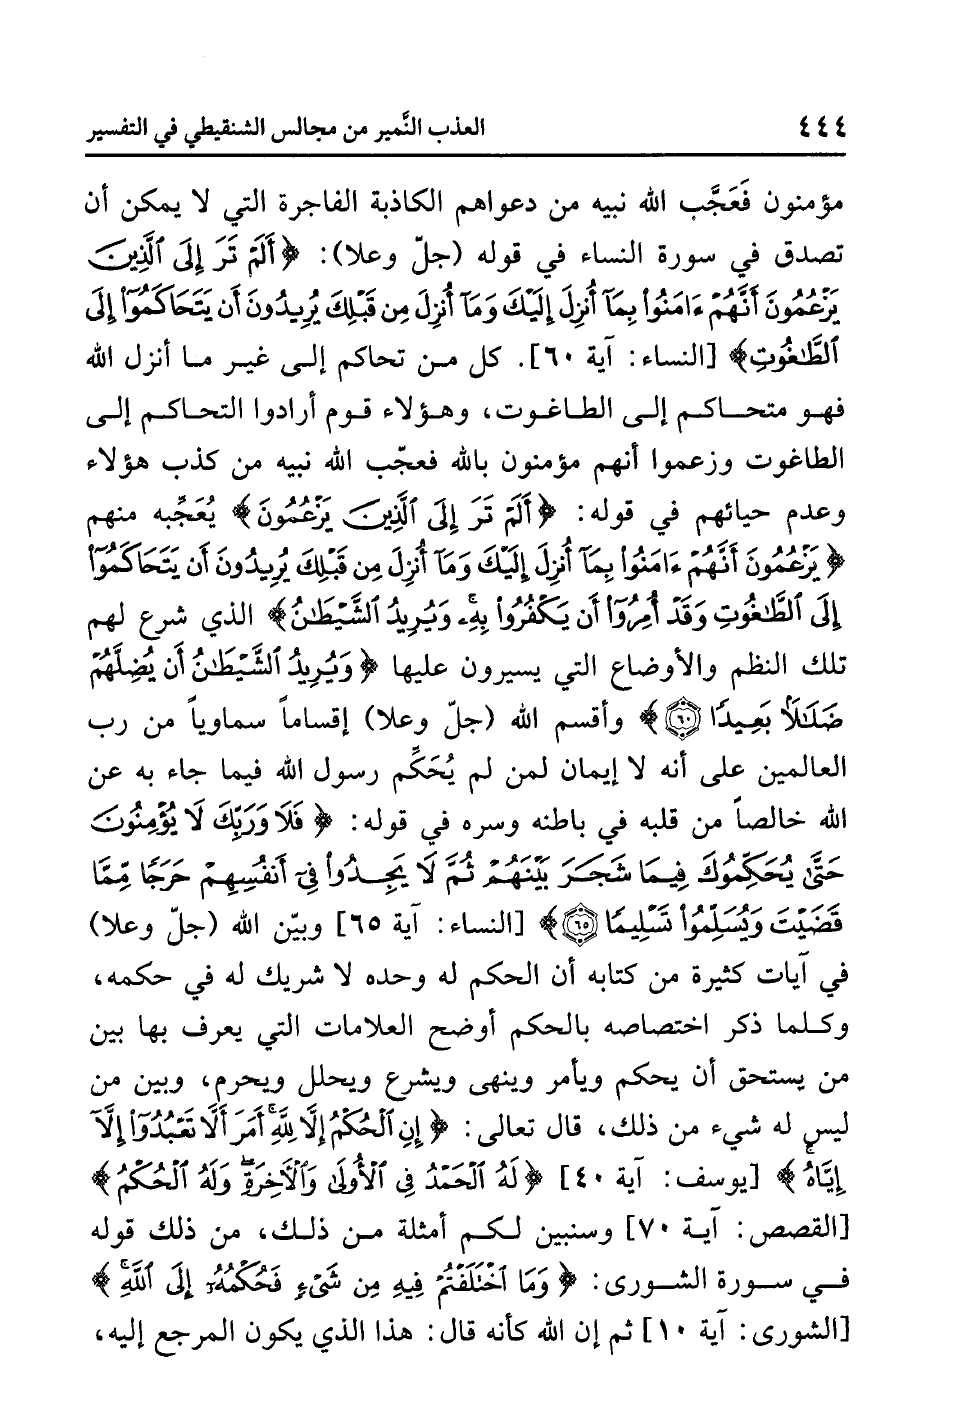 ٤٤٤ العذب النَّمير من مجالس الشنقيطي في التفسير
مؤمنون فَعَجَّب الله نبيه من دعواهم الكاذبة الفاجرة التي لا يمكن أن
تصدق في سورة النساء في قوله (جلّ وعلا): ﴿أَلَمْ تَرَ إِلَى ٱلَّذِينَ
يَزْعُمُونَ أَنَّهُمْ ءَامَنُوا۟ بِمَآ أُنزِلَ إِلَيْكَ وَمَآ أُنزِلَ مِن قَبْلِكَ يُرِيدُونَ أَن يَتَحَاكَمُوٓا۟ إِلَى
ٱلطَّٰغُوتِ﴾ [النساء: آية ٦٠]. كل من تحاكم إلى غير ما أنزل الله
فهو متحاكم إلى الطاغوت، وهؤلاء قوم أرادوا التحاكم إلى
الطاغوت وزعموا أنهم مؤمنون بالله فعجّب الله نبيه من كذب هؤلاء
وعدم حيائهم في قوله: ﴿أَلَمْ تَرَ إِلَى ٱلَّذِينَ يَزْعُمُونَ﴾ يُعَجِّبه منهم
﴿يَزْعُمُونَ أَنَّهُمْ ءَامَنُوا۟ بِمَآ أُنزِلَ إِلَيْكَ وَمَآ أُنزِلَ مِن قَبْلِكَ يُرِيدُونَ أَن يَتَحَاكَمُوٓا۟
إِلَى ٱلطَّٰغُوتِ وَقَدْ أُمِرُوٓا۟ أَن يَكْفُرُوا۟ بِهِۦۚ وَيُرِيدُ ٱلشَّيْطَٰنُ﴾ الذي شرع لهم
تلك النظم والأوضاع التي يسيرون عليها ﴿وَيُرِيدُ ٱلشَّيْطَٰنُ أَن يُضِلَّهُمْ
ضَلَٰلًۢا بَعِيدًا ٦٠﴾ وأقسم الله (جلّ وعلا) إقساماً سماوياً من رب
العالمين على أنه لا إيمان لمن لم يُحَكِّم رسول الله فيما جاء به عن
الله خالصاً من قلبه في باطنه وسره في قوله: ﴿فَلَا وَرَبِّكَ لَا يُؤْمِنُونَ
حَتَّىٰ يُحَكِّمُوكَ فِيمَا شَجَرَ بَيْنَهُمْ ثُمَّ لَا يَجِدُوا۟ فِىٓ أَنفُسِهِمْ حَرَجًا مِّمَّا
قَضَيْتَ وَيُسَلِّمُوا۟ تَسْلِيمًا ٦٥﴾ [النساء: آية ٦٥] وبيّن الله (جلّ وعلا)
في آيات كثيرة من كتابه أن الحكم له وحده لا شريك له في حكمه،
وكلما ذكر اختصاصه بالحكم أوضح العلامات التي يعرف بها بين
من يستحق أن يحكم ويأمر وينهى ويشرع ويحلل ويحرم، وبين من
ليس له شيء من ذلك، قال تعالى: ﴿إِنِ ٱلْحُكْمُ إِلَّا لِلَّهِۚ أَمَرَ أَلَّا تَعْبُدُوٓا۟ إِلَّآ
إِيَّاهُۚ﴾ [يوسف: آية ٤٠] ﴿لَهُ ٱلْحَمْدُ فِى ٱلْأُولَىٰ وَٱلْءَاخِرَةِۖ وَلَهُ ٱلْحُكْمُ﴾
[القصص: آية ٧٠] وسنبين لكم أمثلة من ذلك، من ذلك قوله
في سورة الشورى: ﴿وَمَا ٱخْتَلَفْتُمْ فِيهِ مِن شَىْءٍ فَحُكْمُهُۥٓ إِلَى ٱللَّهِۚ﴾
[الشورى: آية ١٠] ثم إن الله كأنه قال: هذا الذي يكون المرجع إليه،